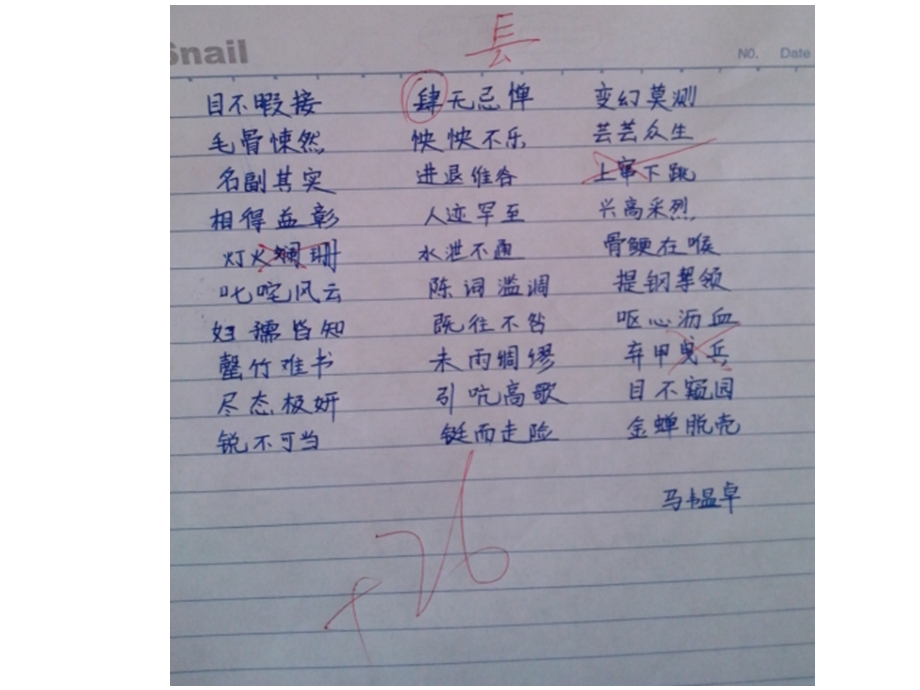 Snail
县
NO. Date
目不暇接 肆无忌惮 变幻莫测
毛骨悚然 怏怏不乐 芸芸众生
名副其实 进退维谷 上窜下跳
相得益彰 人迹罕至 兴高采烈
灯火斓珊 水泄不通 骨鲠在喉
叱咤风云 陈词滥调 提钢挈领
妇孺皆知 既往不咎 呕心沥血
罄竹难书 未雨绸缪 弃甲曳兵
尽态极妍 引吭高歌 目不窥园
锐不可当 铤而走险 金蝉脱壳
马韫卓
+26